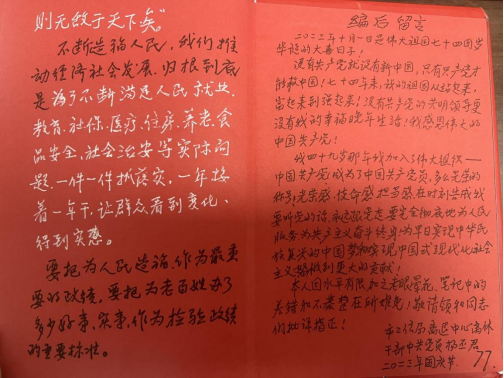 则无敌于天下矣。"
不断造福人民，我们推
动经济社会发展，归根到底
是为了不断满足人民就业、
教育、社保、医疗、住房、养老、食
品安全、社会治安等实际问
题，一件一件抓落实，一年接
着一年干，让群众看到变化、
得到实惠。
要把为人民造福作为最重
要的政绩，要把为老百姓办了
多少好事、实事，作为检验政绩
的重要标准。
编后留言
二〇二三年十月一日是伟大祖国七十四周岁
华诞的大喜日子！
没有共产党就没有新中国，只有共产党才
能救中国！七十四年来，我的祖国从站起来、
富起来到强起来！没有共产党的光明领导更
没有我的幸福晚年生活！我感恩伟大的
中国共产党！
我四十九岁那年我加入了伟大组织——
中国共产党，成为了中国共产党员，多么光荣的
称号，光荣感、使命感、担当感，在时刻告诫我
要听党的话，永远跟党走，要完全彻底地为人民
服务，为共产主义奋斗终身！为早日实现中华民
族复兴的中国梦和实现中国式现代化社会
主义强做到更大的贡献！
本人因水平有限加之老眼昏花，笔记中的
差错和不妥处在所难免！敬请领和同志
们批评指正！
市工信局离退中心离休
干部中共党员杨玉君
二〇二三年国庆节.
77.